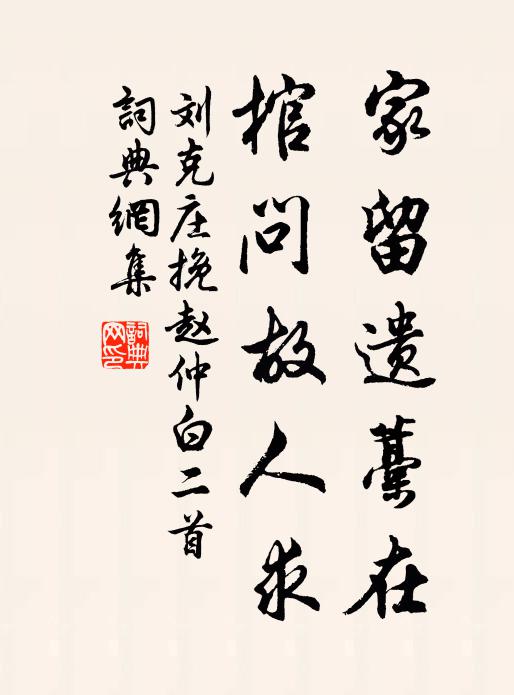 家留遗藁在
棺问故人求
刘克庄挽赵仲白二首
詞典網集
詞典網印